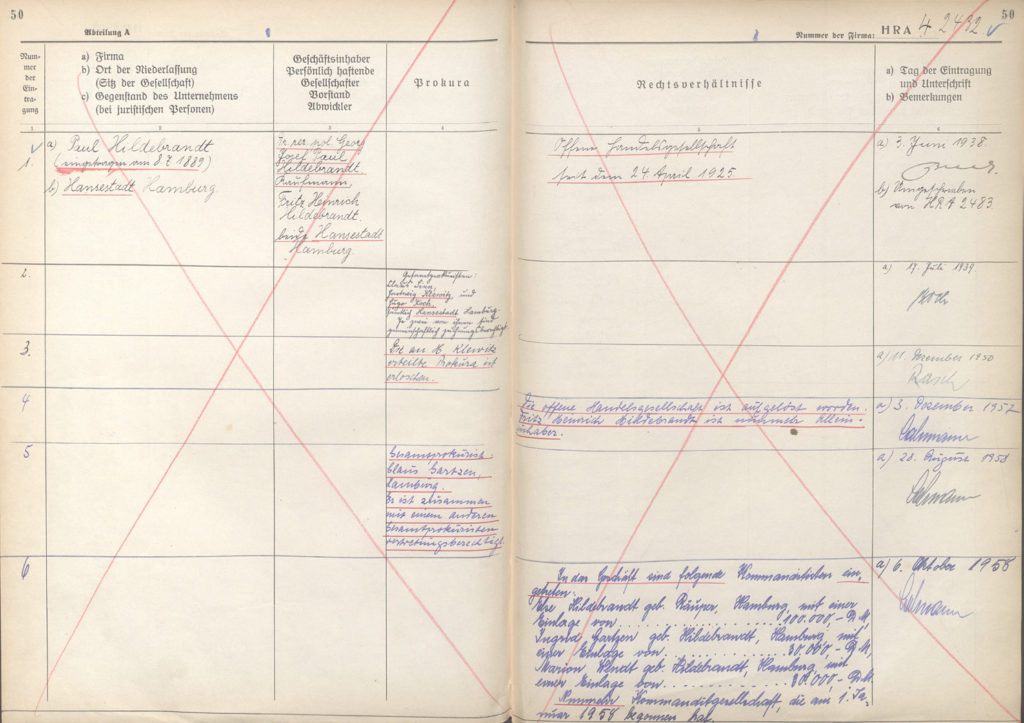 50
Abteilung A
Num-
mer
der
Ein-
tra-
gung
a) Firma
b) Ort der Niederlassung
(Sitz der Gesellschaft)
c) Gegenstand des Unternehmens
(bei juristischen Personen)
Geschäftsinhaber
Persönlich haftende
Gesellschafter
Vorstand
Abwickler
Prokura
1
2
3
4
1.
a) Paul Hildebrandt
(eingetragen am 8. 7. 1889)
b) Hansestadt Hamburg.
Dr. rer. pol. Georg
Josef Paul
Hildebrandt,
Kaufmann,
Fritz Heinrich
Hildebrandt.
beide Hansestadt
Hamburg.
2.
Gesamtprokuristen:
Klewitz und
Hugo Koch,
sämtlich Hansestadt Hamburg.
Je zwei von ihnen sind
gemeinschaftlich zeichnungsberechtigt.
3.
Die an H. Klewitz
erteilte Prokura ist
erloschen.
4
5
Gesamtprokurist:
Claus Gartzen,
Hamburg.
Er ist zusammen
mit einem anderen
Gesamtprokuristen
vertretungsberechtigt.
6
50
Nummer der Firma: HRA 42492
Rechtsverhältnisse
a) Tag der Eintragung
und Unterschrift
b) Bemerkungen
5
6
Offene Handelsgesellschaft
seit dem 24 April 1925
a) 3. Juni 1938.
b) Umgeschrieben
von HRA 2483.
a) 17. Juli 1939.
Koch
a) 11. Dezember 1950
Rasch
Die offene Handelsgesellschaft ist aufgelöst worden.
Fritz Heinrich Hildebrandt ist nunmehr Allein-
inhaber.
a) 3. Dezember 1957
a) 28. August 1958
In das Geschäft sind folgende Kommanditisten ein-
getreten:
Hildebrandt geb. Hamburg, mit einer
Einlage von . . . . . . . . . 100.000,- D.M.
Ingrid Gartzen geb. Hildebrandt, Hamburg, mit
einer Einlage von . . . . . . . 30.000,- D.M.
Marion Wendt geb. Hildebrandt, Hamburg, mit
einer Einlage von . . . . . . . 30.000,- D.M.
Nunmehr Kommanditgesellschaft, die am 1. Ja-
nuar 1958 begonnen hat.
a) 6. Oktober 1958